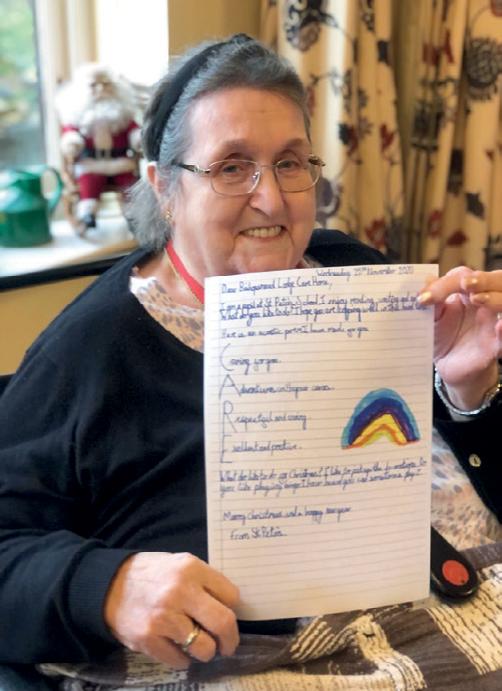 Wednesday 25th November 2020
Dear Bridgewood Lodge Care Home,
I am a pupil at St Peter's School. I enjoy reading, writing and
What do you like to do? I hope you are keeping well in this
Here is an acrostic poem I have made for you
Caring for you.
Adventures with your carers.
Respectful and caring.
Excellent and positive.
What do like to do for Christmas? I like to put up the decorations. Do
you like playing bingo I have heard you can sometimes play it.
Merry Christmas and a happy new year
From St Peter's